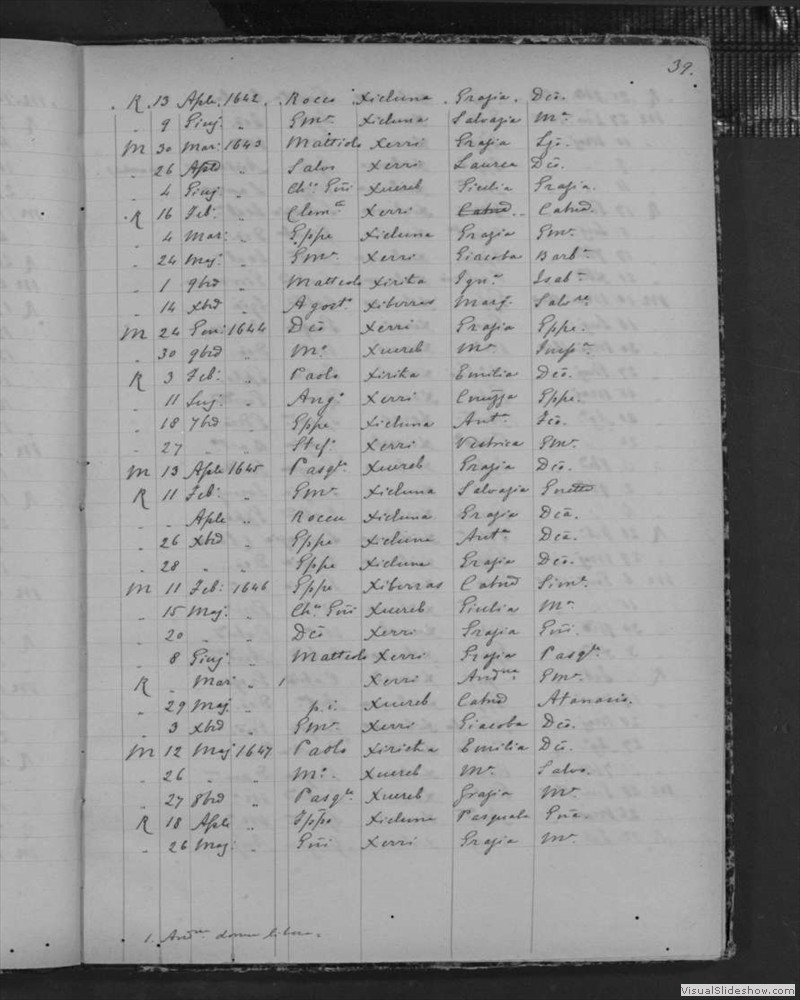 39.
R 13 Aple 1642. Rocco Xicluna Grazia. Dco.
" 9 Giuj " Gmo. Xicluna Salvazia Mo.
M 30 Mar: 1643 Matteolo Xerri Grazia
" 26 Aple " Salvo Xerri Laurea Dco.
" 4 Giuj " Xuereb Giulia Grazia.
R 16 Feb: " Clemte Xerri Catnd. Catnd.
" 4 Mar: " Gppe Xicluna Grazia Gmo.
" 24 Maj: " Gmo. Xerri Giacoba Barba
" 1 9bre " Matteolo Xirita Igna. Isaba
" 14 Xbre " Agosto Xiberras Marg. Salvre
M 24 Gen: 1644 Dco Xerri Grazia Gppe.
" 30 9bre " Mo. Xuereb Ma.
R 3 Feb: " Paolo Xirita Emilia Dco.
" 11 Lug: " Ango Xerri Gppe.
" 18 7bre " Gppe Xicluna Anta
" 27 " " Stefo Xerri Gmo.
M 13 Aple 1645 Pasqle Xuereb Grazia Dco.
R 11 Feb: " Gmo. Xicluna Salvazia
" " Aple " Roccu Xicluna Grazia Dca.
" 26 Xbre " Gppe Xicluna Anta Dca.
" 28 " " Gppe Xicluna Grazia Dco.
M 11 Feb: 1646 Gppe Xiberras Catnd Simne.
" 15 Maj: " Xuereb Giulia Mo.
" 20 " " Dco Xerri Grazia Gni.
" 8 Giuj " Matteolo Xerri Grazia Pasqle
R " Mar: " 1 Xerri Andna Gmo.
" 29 Maj " p.i. Xuereb Catnd Atanasio.
" 3 Xbre " Gmo. Xerri Giacoba Dco.
M 12 Maj 1647 Paolo Xiricha Emilia Dco.
" 26 " " Mo. Xuereb Ma. Salvo.
" 27 8bre " Pasqle Xuereb Grazia Mo.
R 18 Aple " Gppe Xicluna Pasquala Gna.
" 26 Maj: " Gni Xerri Grazia Mo.
1. Andna donna libera.
VisualSlideshow.com